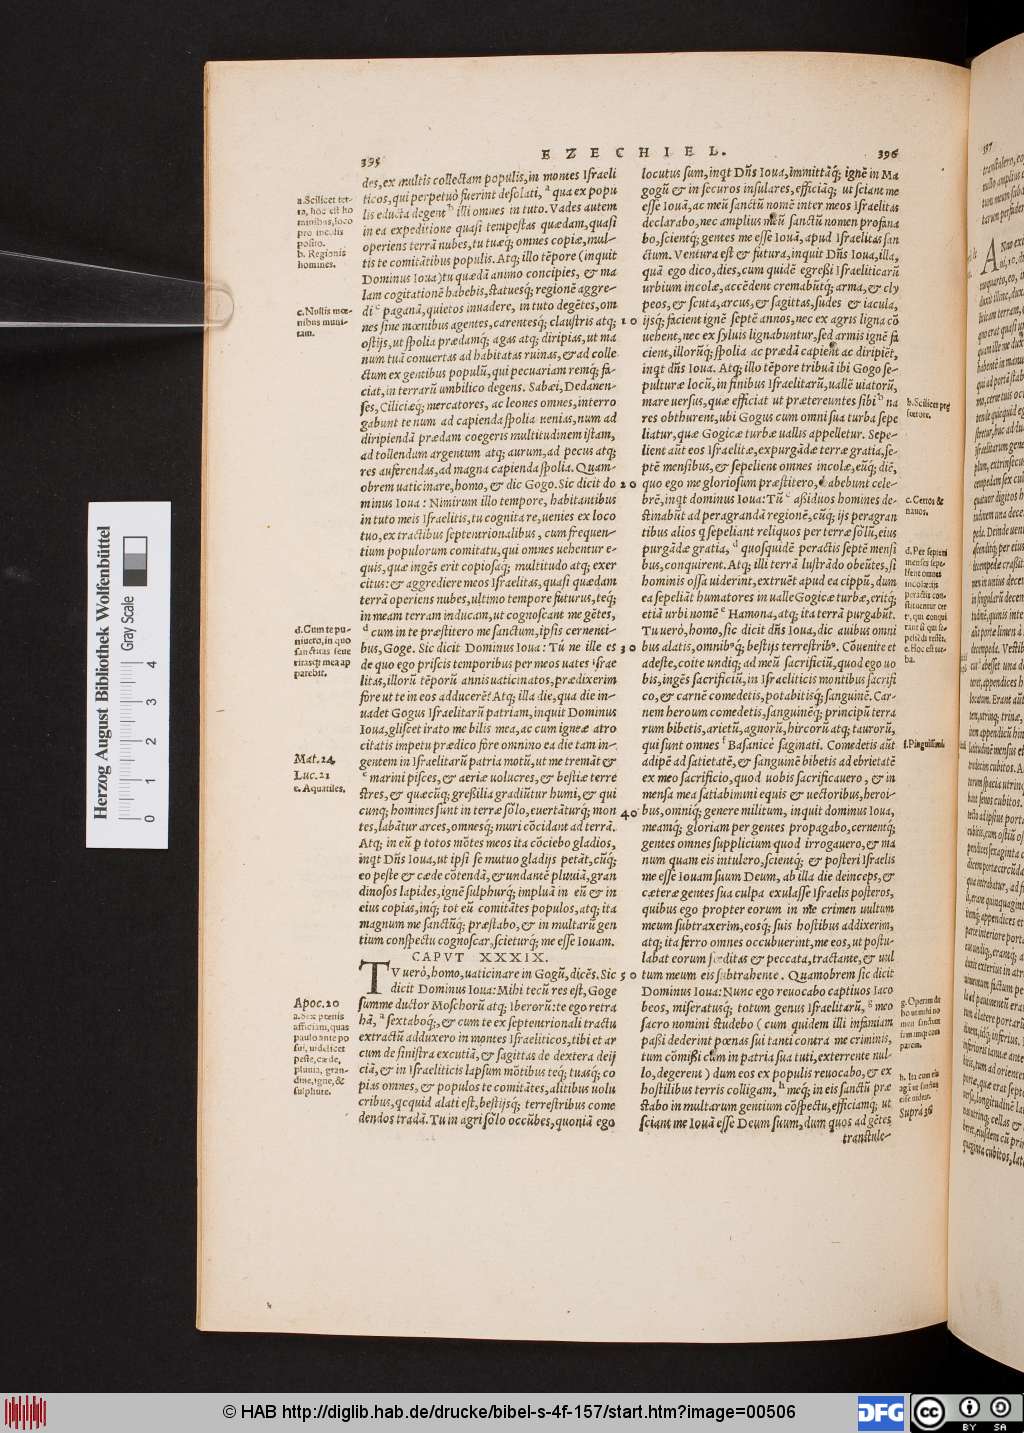 395
EZECHIEL.
396
des, ex multis collectam populis, in montes Israeli
ticos, qui perpetuò fuerint desolati, a qua ex popu
lis educta degent b illi omnes in tuto. Vades autem
in ea expeditione quasi tempestas quædam, quasi
operiens terrã nubes, tu tuæq́; omnes copiæ, mul-
tis te comitãtibus populis. Atq; illo tẽpore (inquit
Dominus Ioua) tu quædã animo concipies, & ma
lam cogitationẽ habebis, statuesq́; regionẽ aggre-
di c paganã, quietos inuadere, in tuto degẽtes, om
nes sine mœnibus agentes, carentesq́; claustris atq; 10
ostijs, ut spolia prædamq́; agas atq; diripias, ut ma
num tuã conuertas ad habitatas ruinas, & ad colle
ctum ex gentibus populũ, qui pecuariam remq́; fa-
ciat, in terrarũ umbilico degens. Sabæi, Dedanen-
ses, Ciliciæq́; mercatores, ac leones omnes, interro
gabunt te num ad capienda spolia uenias, num ad
diripiendã prædam coegeris multitudinem istam,
ad tollendum argentum atq; aurum, ad pecus atq;
res auferendas, ad magna capienda spolia. Quam-
obrem uaticinare, homo, & dic Gogo. Sic dicit do 20
minus Ioua: Nimirum illo tempore, habitantibus
in tuto meis Israelitis, tu cognita re, uenies ex loco
tuo, ex tractibus septentrionalibus, cum frequen-
tium populorum comitatu, qui omnes uehentur e-
quis, quæ ingẽs erit copiosaq́; multitudo atq; exer
citus: & aggrediere meos Israelitas, quasi quædam
terrã operiens nubes, ultimo tempore futurus, teq́;
in meam terram inducam, ut cognoscant me gẽtes,
d cum in te præstitero me sanctum, ipsis cernenti-
bus, Goge. Sic dicit Dominus Ioua: Tú ne ille es 30
de quo ego priscis temporibus per meos uates israe
litas, illorũ tẽporũ annis uaticinatos, prædixerim
fore ut te in eos adducerẽ? Atq; illa die, qua die in-
uadet Gogus Israelitarũ patriam, inquit Dominus
Ioua, gliscet irato me bilis mea, ac cum igneæ atro
citatis impetu prædico fore omnino ea die tam in-
gentem in Israelitarũ patria motũ, ut me tremãt &
e marini pisces, & aeriæ uolucres, & bestiæ terre
stres, & quæcũq; gressilia gradiũtur humi, & qui
cunq; homines sunt in terræ sõlo, euertãturq́; mon 40
tes, labãtur arces, omnesq́; muri cõcidant ad terrã.
Atq; in eũ p totos mõtes meos ita cõciebo gladios,
inqt Dñs Ioua, ut ipsi se mutuo gladijs petãt, cũq́;
eo peste & cæde cõtendã, & undantẽ pluuiã, gran
dinosos lapides, ignẽ sulphurq́; impluã in eũ & in
eius copias, inq́; tot eũ comitãtes populos, atq; ita
magnum me sanctũq́; præstabo, & in multarũ gen
tium conspectu cognoscar, scieturq́; me esse Iouam.
CAPVT XXXIX.
TV uerò, homo, uaticinare in Gogũ, dicẽs. Sic 50
dicit Dominus Ioua: Mihi tecũ res est, Goge
summe ductor Moschorũ atq; Iberorũ: te ego retra
hã, a sextaboq́;, & cum te ex septentrionali tractu
extractũ adduxero in montes Israeliticos, tibi et ar
cum de sinistra excutiã, & sagittas de dextera deij
ciã, & in Israeliticis lapsum mõtibus teq́; tuasq́; co
pias omnes, & populos te comitãtes, alitibus uolu
cribus, qcquid alati est, bestijsq́; terrestribus come
dendos tradã. Tu in agri sõlo occũbes, quoniã ego
a. Scilicet ter-
ra, hoc est ho
minibus, loco
pro incolis
posito.
b. Regionis
homines.
c. Nullis mœ-
nibus muni-
tam.
d. Cum te pu-
niuero, in quo
sanctitas seue
ritasq; mea ap
parebit.
Mat. 24
Luc. 21
e. Aquatiles.
Apoc. 20
a. Sex pœnis
afficiam, quas
paulo ante po
sui, uidelicet
peste, cæde,
pluuia, gran-
dine, igne, &
sulphure.
locutus sum, inqt Dñs Ioua, immittãq́; ignẽ in Ma
gogũ & in securos insulares, efficiãq́; ut sciant me
esse Iouã, ac meũ sanctũ nomẽ inter meos Israelitas
declarabo, nec amplius meũ sanctũ nomen profana
bo, scientq́; gentes me esse Iouã, apud Israelitas san
ctum. Ventura est & futura, inquit Dñs Ioua, illa,
quã ego dico, dies, cum quidẽ egressi Israeliticarũ
urbium incolæ, accẽdent cremabũtq́; arma, & cly
peos, & scuta, arcus, & sagittas, sudes & iacula,
ijsq́; facient ignẽ septẽ annos, nec ex agris ligna cõ
uehent, nec ex syluis lignabuntur, sed armis ignẽ fa
cient, illorũq́; spolia ac prædã capient ac diripiẽt,
inqt dñs Ioua. Atq; illo tẽpore tribuã ibi Gogo se-
pulturæ locũ, in finibus Israelitarũ, uallẽ uiatorũ,
mare uersus, quæ efficiat ut prætereuntes sibi b na
res obthurent, ubi Gogus cum omni sua turba sepe
liatur, quæ Gogicæ turbæ uallis appelletur. Sepe-
lient aũt eos Israelitæ, expurgãdæ terræ gratia, se-
ptẽ mensibus, & sepelient omnes incolæ, eũq́; diẽ,
quo ego me gloriosum præstitero, celebunt cele-
brẽ, inqt dominus Ioua: Tũ c assiduos homines de-
stinabũt ad peragrandã regionẽ, cũq́; ijs peragran
tibus alios q sepeliant reliquos per terræ sõlũ, eius
purgãdæ gratia, d quosquidẽ peractis septẽ mensi
bus, conquirent. Atq; illi terrã lustrãdo obeũtes, si
hominis ossa uiderint, extruẽt apud ea cippũ, dum
ea sepeliãt humatores in ualle Gogicæ turbæ, eritq́;
etiã urbi nomẽ e Hamona, atq; ita terrã purgabũt.
Tu uerò, homo, sic dicit dñs Ioua, dic auibus omni
bus alatis, omnibq́; bestijs terrestrib9. Cõuenite et
adeste, coite undiq; ad meũ sacrificiũ, quod ego uo
bis, ingẽs sacrificiũ, in Israeliticis montibus sacrifi
co, & carnẽ comedetis, potabitisq́; sanguinẽ. Car-
nem heroum comedetis, sanguinẽq́; principũ terra
rum bibetis, arietũ, agnorũ, hircorũ atq; taurorũ,
qui sunt omnes f Basanicè saginati. Comedetis aũt
adipẽ ad satietatẽ, & sanguinẽ bibetis ad ebrietatẽ
ex meo sacrificio, quod uobis sacrificauero, & in
mensa mea satiabimini equis & uectoribus, heroi-
bus, omniq́; genere militum, inquit dominus Ioua,
meamq́; gloriam per gentes propagabo, cernentq́;
gentes omnes supplicium quod irrogauero, & ma
num quam eis intulero, scientq́; & posteri Israelis
me esse Iouam suum Deum, ab illa die deinceps, &
cæteræ gentes sua culpa exulasse Israelis posteros,
quibus ego propter eorum in me crimen uultum
meum subtraxerim, eosq́; suis hostibus addixerim,
atq; ita ferro omnes occubuerint, me eos, ut postu-
labat eorum sorditas & peccata, tractante, & uul
tum meum eis subtrahente. Quamobrem sic dicit
Dominus Ioua: Nunc ego reuocabo captiuos Iaco
beos, miseratusq́; totum genus Israelitarũ, g meo
sacro nomini studebo (cum quidem illi infamiam
passi dederint pœnas sui tanti contra me criminis,
tum cõmissi cùm in patria sua tuti, exterrente nul-
lo, degerent) dum eos ex populis reuocabo, & ex
hostilibus terris colligam, h meq́; in eis sanctũ præ
stabo in multarum gentium cõspectu, efficiamq́; ut
sciant me Iouã esse Deum suum, dum quos ad gẽtes
transtule-
b. Scilicet præ
fœtore.
c. Certos &
nauos.
d. Per septem
menses sepe-
lient omnes
incolæ: ijs
peractis con-
stituentur cer
ti, qui conqui
rant si qui se-
peliẽdi restẽt.
e. Hoc est tur-
ba.
f. Pinguissimè
g. Operam da
bo ut mihi no
men sanctum
iam impj com
parem.
h. Ita cum eis
agã ut sanctus
esse uidear.
Supra 36
397
Herzog August Bibliothek Wolfenbüttel
Gray Scale
0 1 2 3 4
© HAB http://diglib.hab.de/drucke/bibel-s-4f-157/start.htm?image=00506
DFG
cc
BY SA